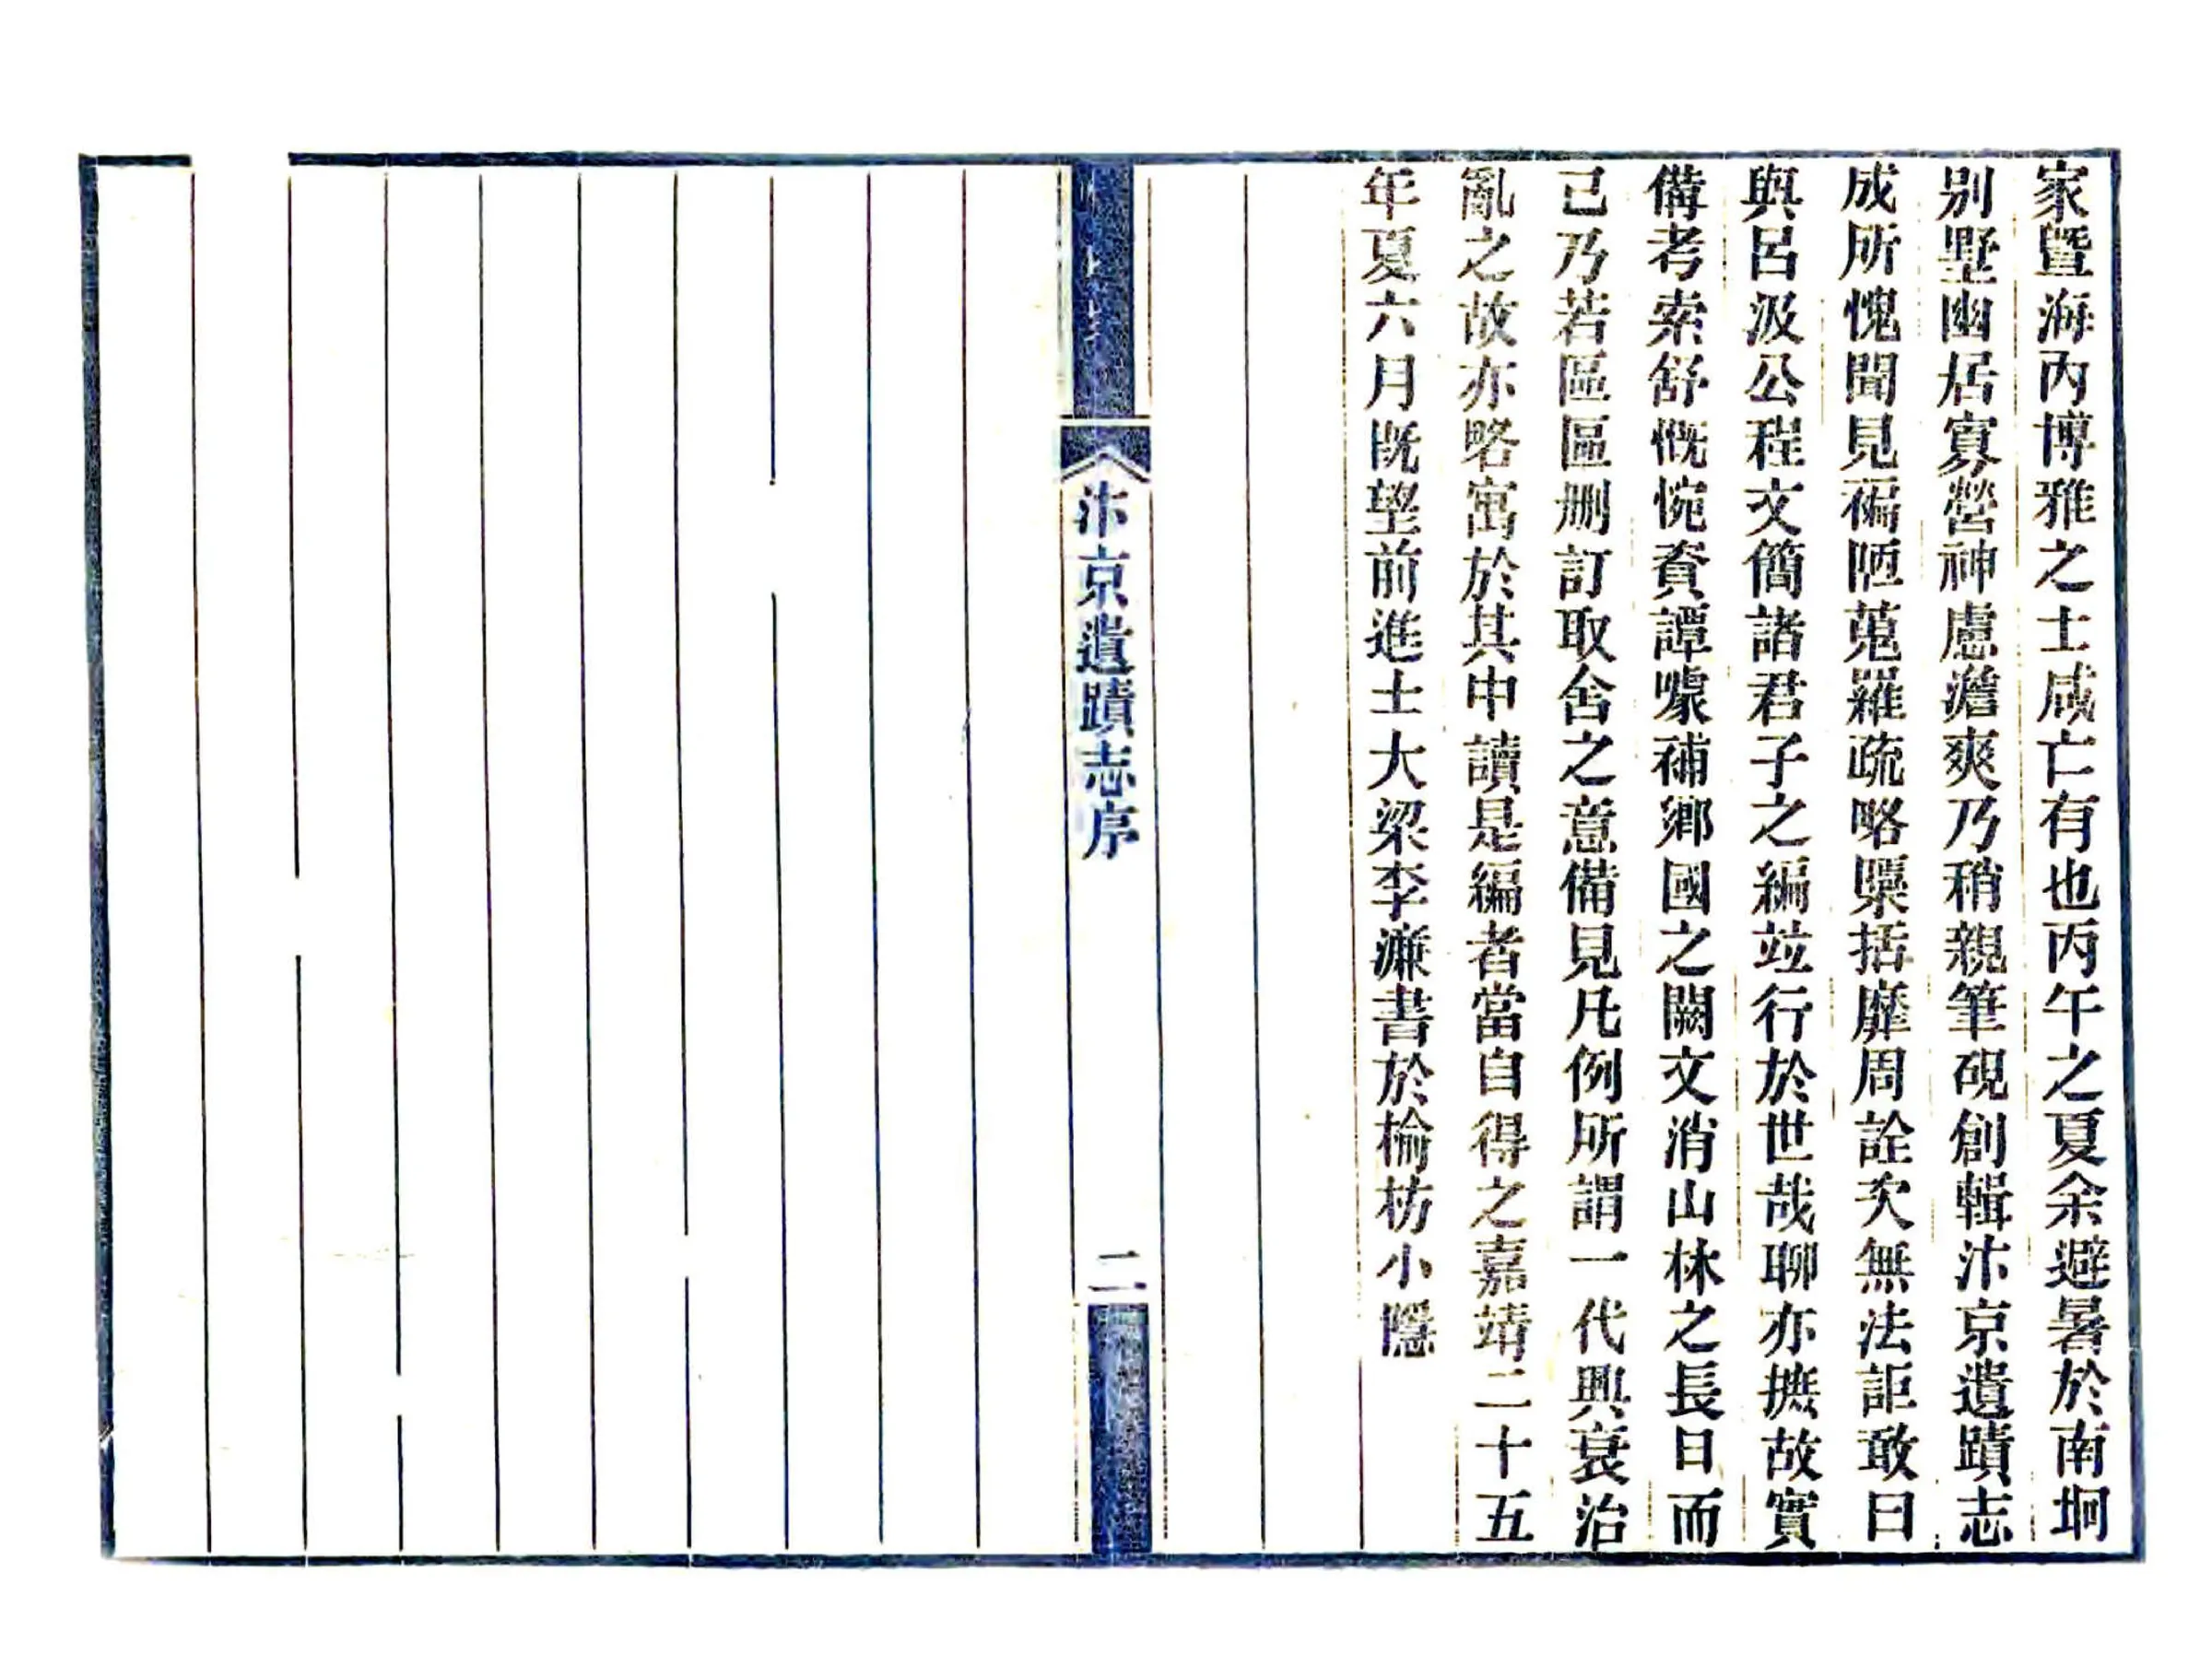 家曁海內博雅之士咸亡有也丙午之夏余避暑於南坰
别墅幽居寡營神慮澹爽乃稍親筆硯創輯汴京遺蹟志
成所愧聞見褊陋蒐羅疏略櫽括靡周詮次無法詎敢曰
與呂汲公程文簡諸君子之編竝行於世哉聊亦摭故實
備考索舒慨惋資譚噱補鄉國之闕文消山林之長日而
已乃若區區删訂取舍之意備見凡例所謂一代興衰治
亂之故亦略寓於其中讀是編者當自得之嘉靖二十五
年夏六月旣望前進士大梁李濂書於榆枋小隱
汴京遺蹟志序
二